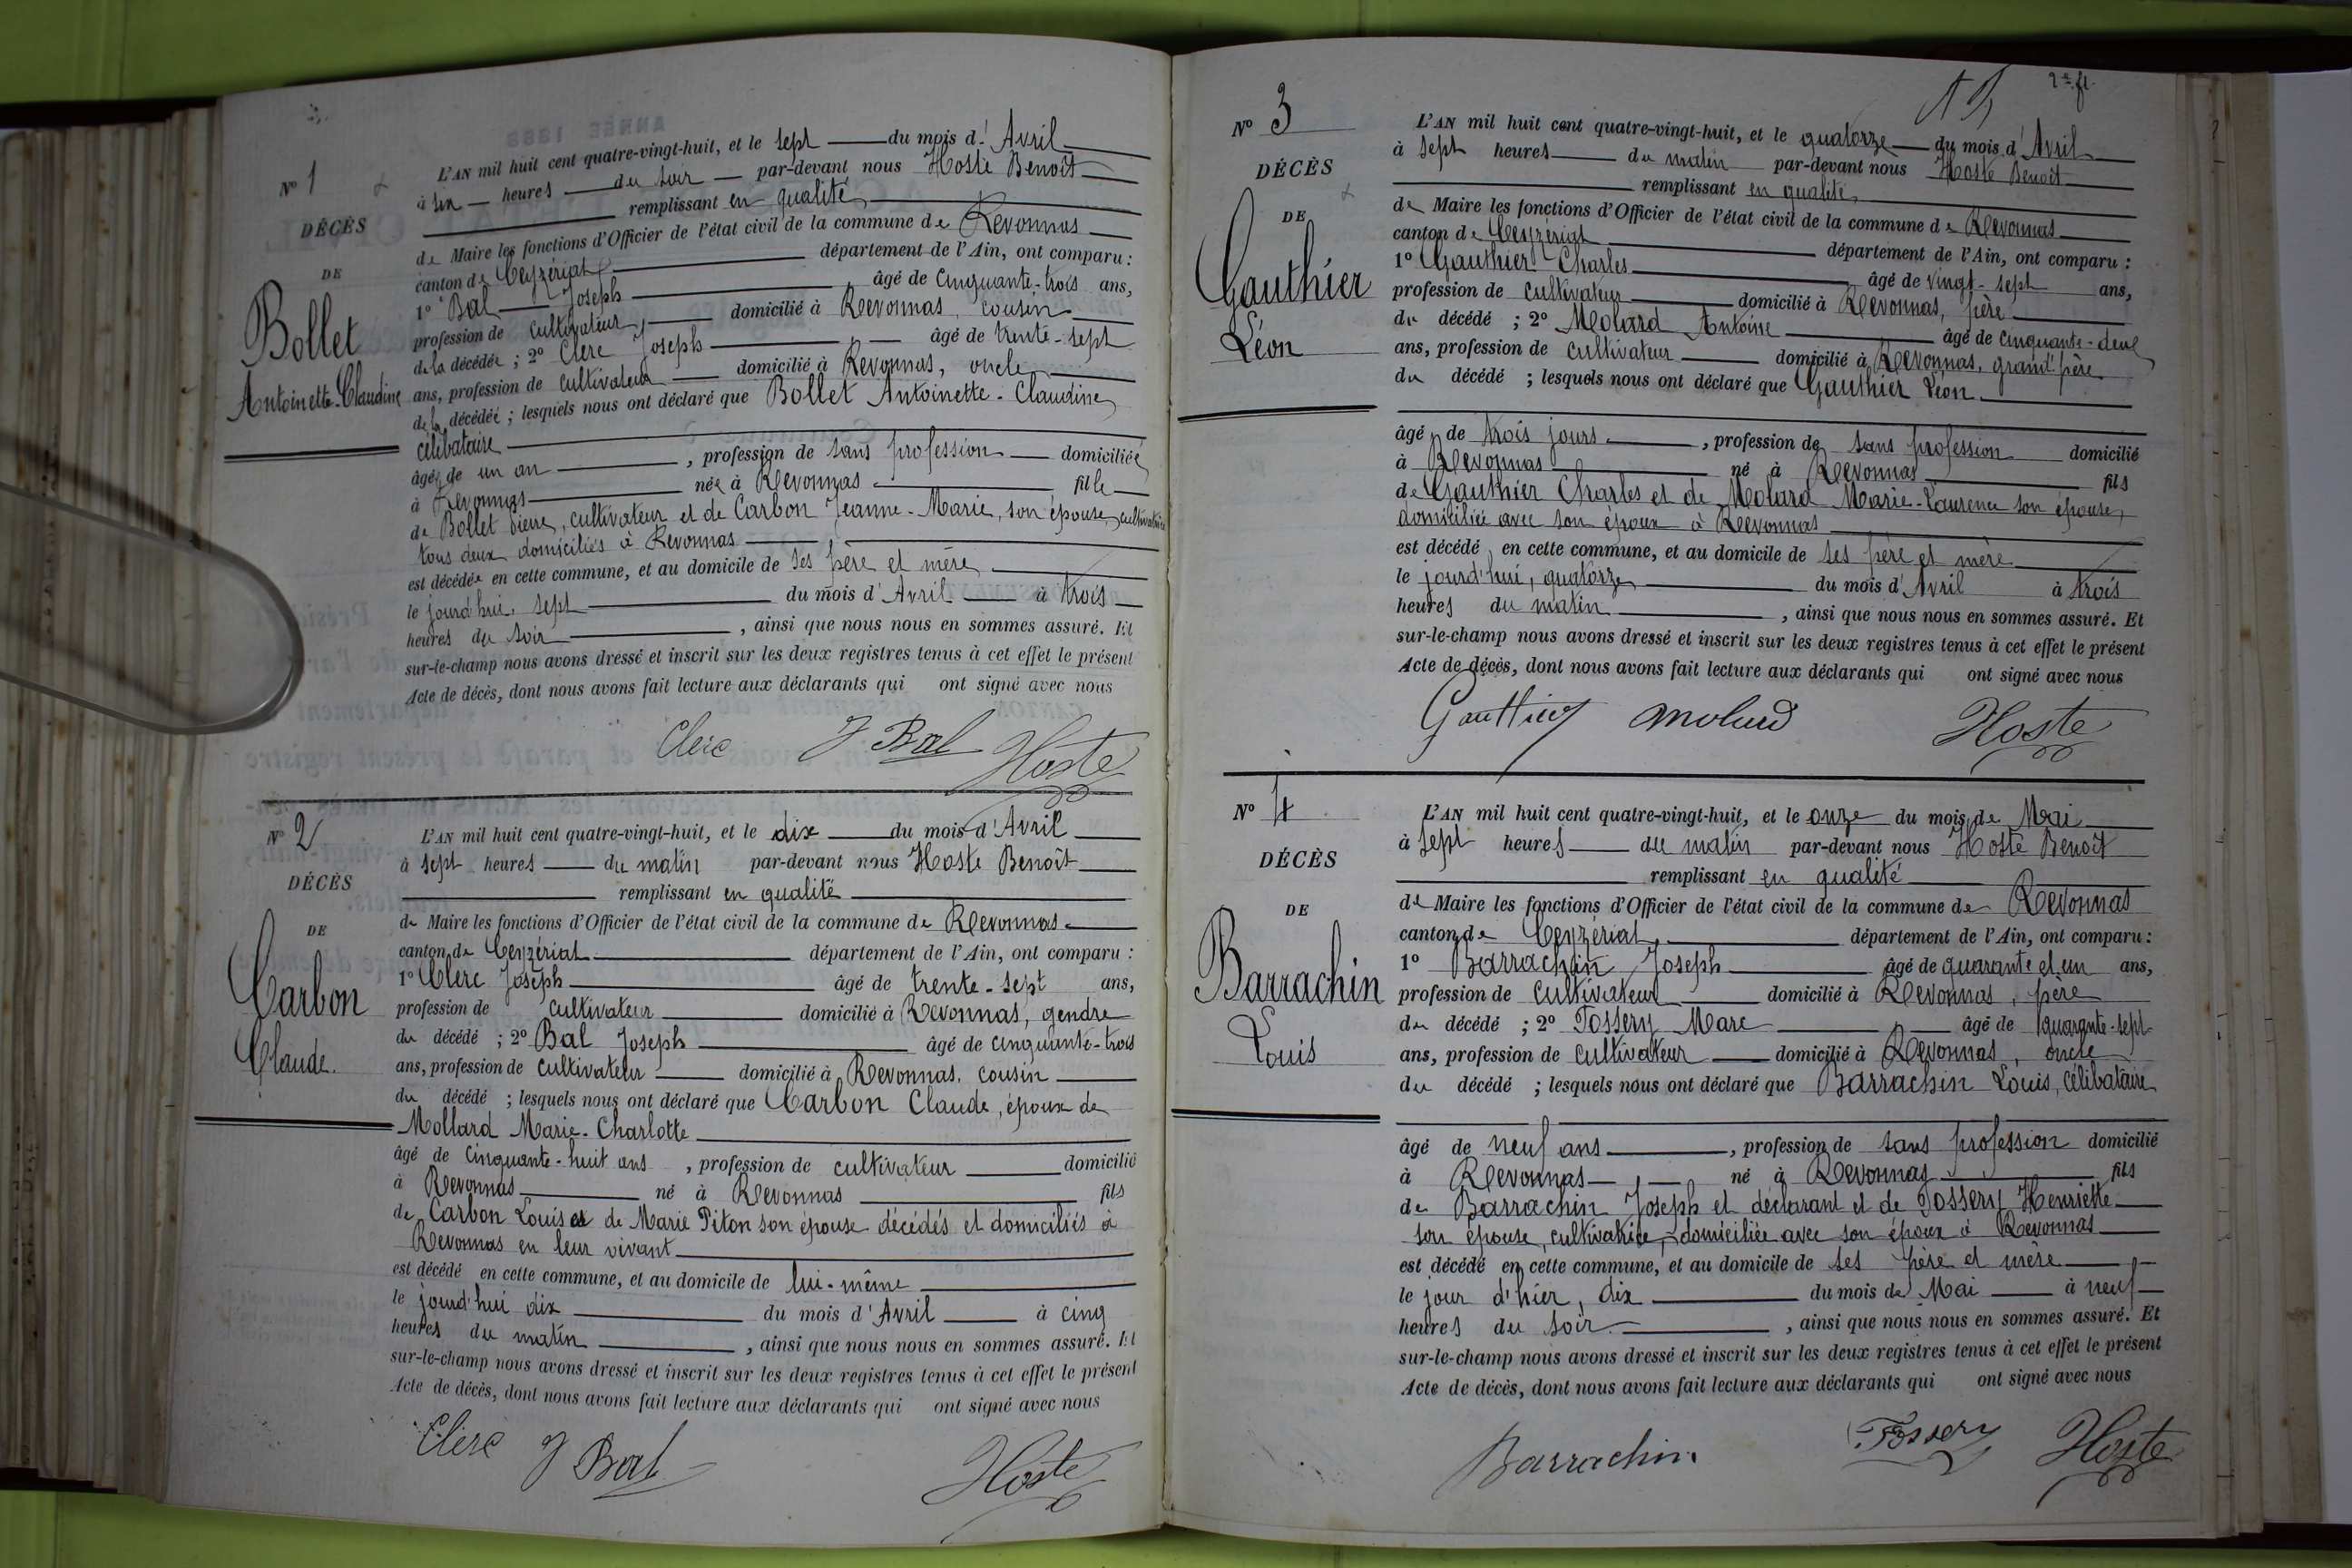 N° 1
DÉCÈS
DE
Bollet
Antoinette-Claudine
L'AN mil huit cent quatre-vingt-huit, et le sept du mois d'Avril
à six heures du soir par-devant nous Hoste Benoît
remplissant en qualité
de Maire les fonctions d'Officier de l'état civil de la commune de Revonnas
canton de Ceyzériat département de l'Ain, ont comparu :
1° Bal Joseph âgé de cinquante-trois ans,
profession de cultivateur, domicilié à Revonnas, cousin
de la décédée ; 2° Clerc Joseph âgé de trente-sept
ans, profession de cultivateur domicilié à Revonnas, oncle
de la décédée ; lesquels nous ont déclaré que Bollet Antoinette-Claudine,
célibataire
âgée de un an , profession de sans profession domiciliée
à Revonnas née à Revonnas fille
de Bollet Pierre, cultivateur et de Carbon Jeanne-Marie, son épouse, cultivatrice
tous deux domiciliés à Revonnas
est décédée en cette commune, et au domicile de ses père et mère
le jourd'hui, sept du mois d'Avril à trois
heures du soir , ainsi que nous nous en sommes assuré. Et
sur-le-champ nous avons dressé et inscrit sur les deux registres tenus à cet effet le présent
Acte de décès, dont nous avons fait lecture aux déclarants qui ont signé avec nous
Clerc J Bal Hoste
N° 2
DÉCÈS
DE
Carbon
Claude.
L'AN mil huit cent quatre-vingt-huit, et le dix du mois d'Avril
à sept heures du matin par-devant nous Hoste Benoît
remplissant en qualité
de Maire les fonctions d'Officier de l'état civil de la commune de Revonnas
canton de Ceyzériat département de l'Ain, ont comparu :
1° Clerc Joseph âgé de trente-sept ans,
profession de cultivateur domicilié à Revonnas, gendre
du décédé ; 2° Bal Joseph âgé de cinquante-trois
ans, profession de cultivateur domicilié à Revonnas, cousin
du décédé ; lesquels nous ont déclaré que Carbon Claude, époux de
Mollard Marie-Charlotte
âgé de cinquante-huit ans , profession de cultivateur domicilié
à Revonnas né à Revonnas fils
de Carbon Louis et de Marie Piton son épouse décédés et domiciliés à
Revonnas en leur vivant
est décédé en cette commune, et au domicile de lui-même
le jourd'hui dix du mois d'Avril à cinq
heures du matin , ainsi que nous nous en sommes assuré. Et
sur-le-champ nous avons dressé et inscrit sur les deux registres tenus à cet effet le présent
Acte de décès, dont nous avons fait lecture aux déclarants qui ont signé avec nous
Clerc J Bal Hoste
N° 3
DÉCÈS
DE
Gauthier
Léon
L'AN mil huit cent quatre-vingt-huit, et le quatorze du mois d'Avril
à sept heures du matin par-devant nous Hoste Benoît
remplissant en qualité
de Maire les fonctions d'Officier de l'état civil de la commune de Revonnas
canton de Ceyzériat département de l'Ain, ont comparu :
1° Gauthier Charles âgé de vingt-sept ans,
profession de cultivateur domicilié à Revonnas, père
du décédé ; 2° Molard Antoine âgé de cinquante-deux
ans, profession de cultivateur domicilié à Revonnas, grand'père
du décédé ; lesquels nous ont déclaré que Gauthier Léon
âgé de trois jours , profession de sans profession domicilié
à Revonnas né à Revonnas fils
de Gauthier Charles et de Molard Marie-Laurence son épouse,
domiciliée avec son époux à Revonnas
est décédé en cette commune, et au domicile de ses père et mère
le jourd'hui, quatorze du mois d'Avril à trois
heures du matin , ainsi que nous nous en sommes assuré. Et
sur-le-champ nous avons dressé et inscrit sur les deux registres tenus à cet effet le présent
Acte de décès, dont nous avons fait lecture aux déclarants qui ont signé avec nous
Gauthier Molard Hoste
N° 4
DÉCÈS
DE
Barrachin
Louis
L'AN mil huit cent quatre-vingt-huit, et le onze du mois de Mai
à sept heures du matin par-devant nous Hoste Benoît
remplissant en qualité
de Maire les fonctions d'Officier de l'état civil de la commune de Revonnas
canton de Ceyzériat, département de l'Ain, ont comparu :
1° Barrachin Joseph âgé de quarante et un ans,
profession de cultivateur domicilié à Revonnas, père
du décédé ; 2° Fossery Marc âgé de quarante-sept
ans, profession de cultivateur domicilié à Revonnas, oncle
du décédé ; lesquels nous ont déclaré que Barrachin Louis, célibataire
âgé de neuf ans , profession de sans profession domicilié
à Revonnas né à Revonnas fils
de Barrachin Joseph et déclarant et de Fossery Henriette
son épouse, cultivatrice, domiciliée avec son époux à Revonnas
est décédé en cette commune, et au domicile de ses père et mère
le jour d'hier, dix du mois de Mai à neuf
heures du soir , ainsi que nous nous en sommes assuré. Et
sur-le-champ nous avons dressé et inscrit sur les deux registres tenus à cet effet le présent
Acte de décès, dont nous avons fait lecture aux déclarants qui ont signé avec nous
Barrachin Fossery Hoste